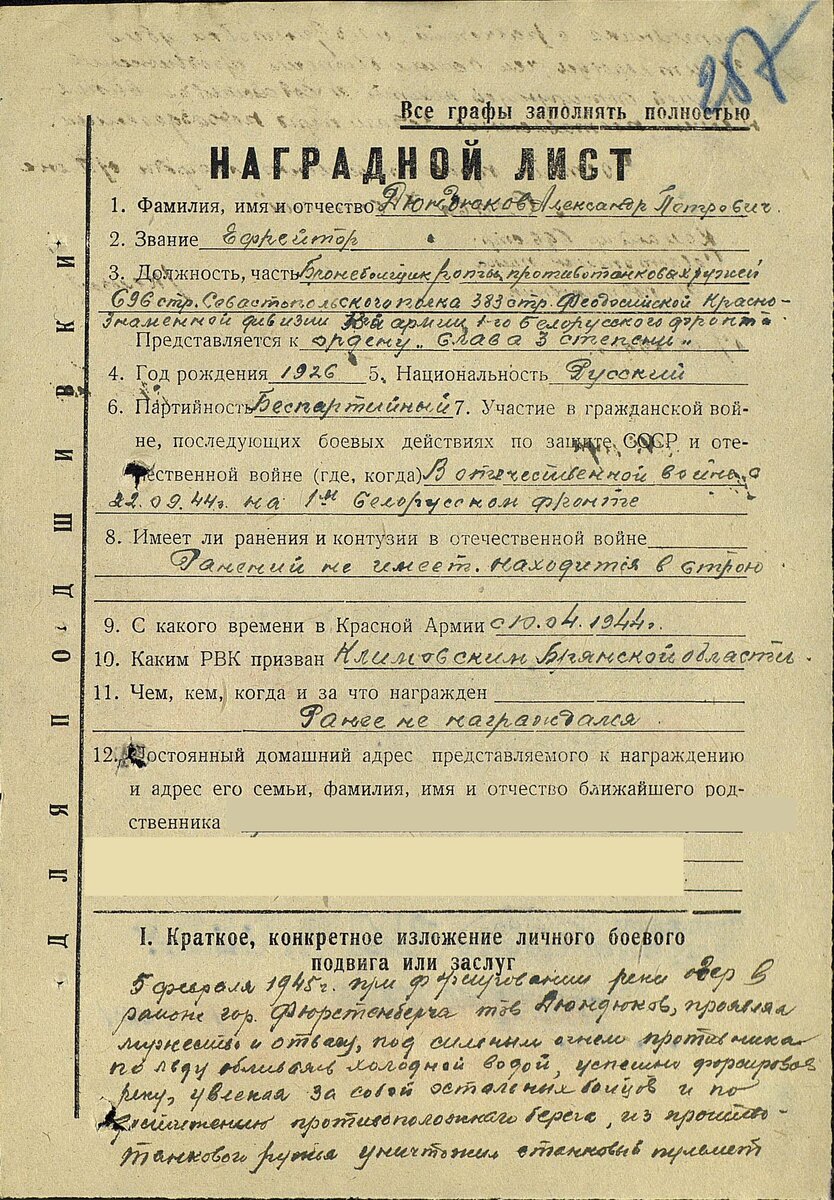 287
Все графы заполнять полностью
НАГРАДНОЙ ЛИСТ
1. Фамилия, имя и отчество Дюндюков Александр Петрович.
2. Звание Ефрейтор
3. Должность, часть Бронебойщик роты противотанковых ружей
696 стр. Севастопольского полка 383 стр. Феодосийской Красно-
знаменной дивизии армии 1-го Белорусского фронта
Представляется к ордену „Слава 3 степени"
4. Год рождения 1926 5. Национальность Русский
6. Партийность Беспартийный 7. Участие в гражданской вой-
не, последующих боевых действиях по защите СССР и оте-
чественной войне (где, когда) В отечественной войне с
22.09.44г. на 1м Белорусском фронте
8. Имеет ли ранения и контузии в отечественной войне
Ранений не имеет. находится в строю
9. С какого времени в Красной Армии с 10.04.1944г.
10. Каким РВК призван Климовским Брянской области.
11. Чем, кем, когда и за что награжден
Ранее не награждался.
12. Постоянный домашний адрес представляемого к награждению
и адрес его семьи, фамилия, имя и отчество ближайшего род-
ственника
I. Краткое, конкретное изложение личного боевого
подвига или заслуг
5 февраля 1945г. при форсировании реки Одер в
районе гор. Фюрстенберга тов Дюндюков, проявляя
мужество и отвагу, под сильным огнем противника
по льду обливаясь холодной водой, успешно форсировал
реку, увлекая за собой остальных бойцов и по
достижению противоположного берега, из противо-
танкового ружья уничтожил станковый пулемет
ДЛЯ ПОДШИВКИ